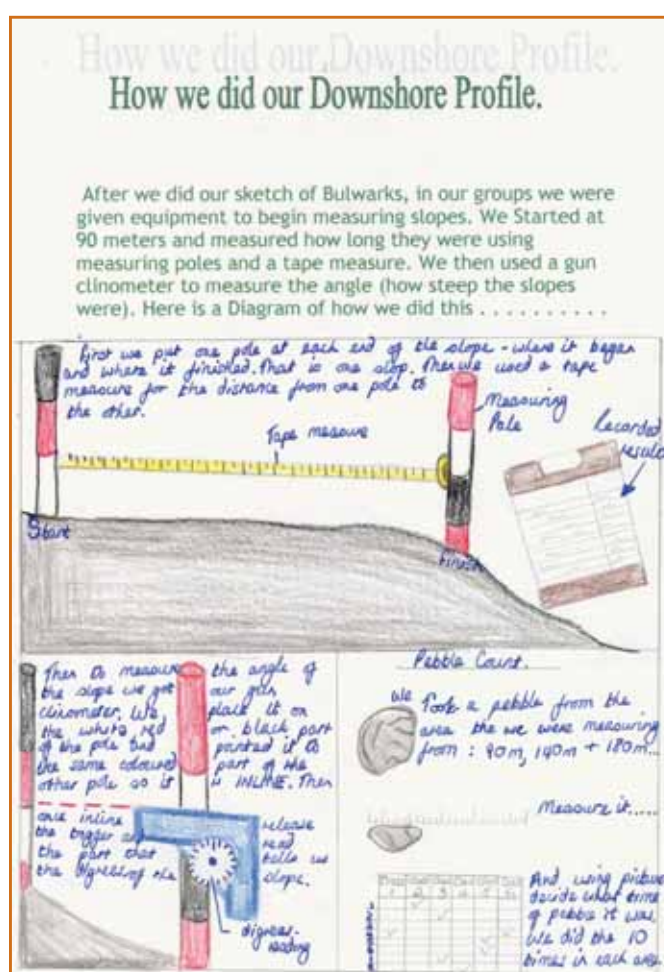 How we did our Downshore Profile.
How we did our Downshore Profile.
After we did our sketch of Bulwarks, in our groups we were
given equipment to begin measuring slopes. We Started at
90 meters and measured how long they were using
measuring poles and a tape measure. We then used a gun
clinometer to measure the angle (how steep the slopes
were). Here is a Diagram of how we did this . . . . . . . . . .
First we put one pole at each end of the slope - where it began
and where it finished. That is one slop. Then we used a tape
measure for the distance from one pole to
the other.
Measuring
Pole
Tape measure
Recorded
results
Start
Finish
Then to measure the angle of
the slope we got our gun
clinometer. We place it on
the white, red or black part
of the pole and pointed it to
the same coloured part of the
other pole so it is INLINE. Then
once inline release
the trigger and read
the part that tells us
the digrees of the slope.
digrees
reading
Pebble Count.
We Took a pebble from the
area the we were measuring
from : 90m, 140m + 180m...
Measure it.....
1 2 3 4 5
And using picture
decide what
of pebble it was
We did the 10
times in each area.